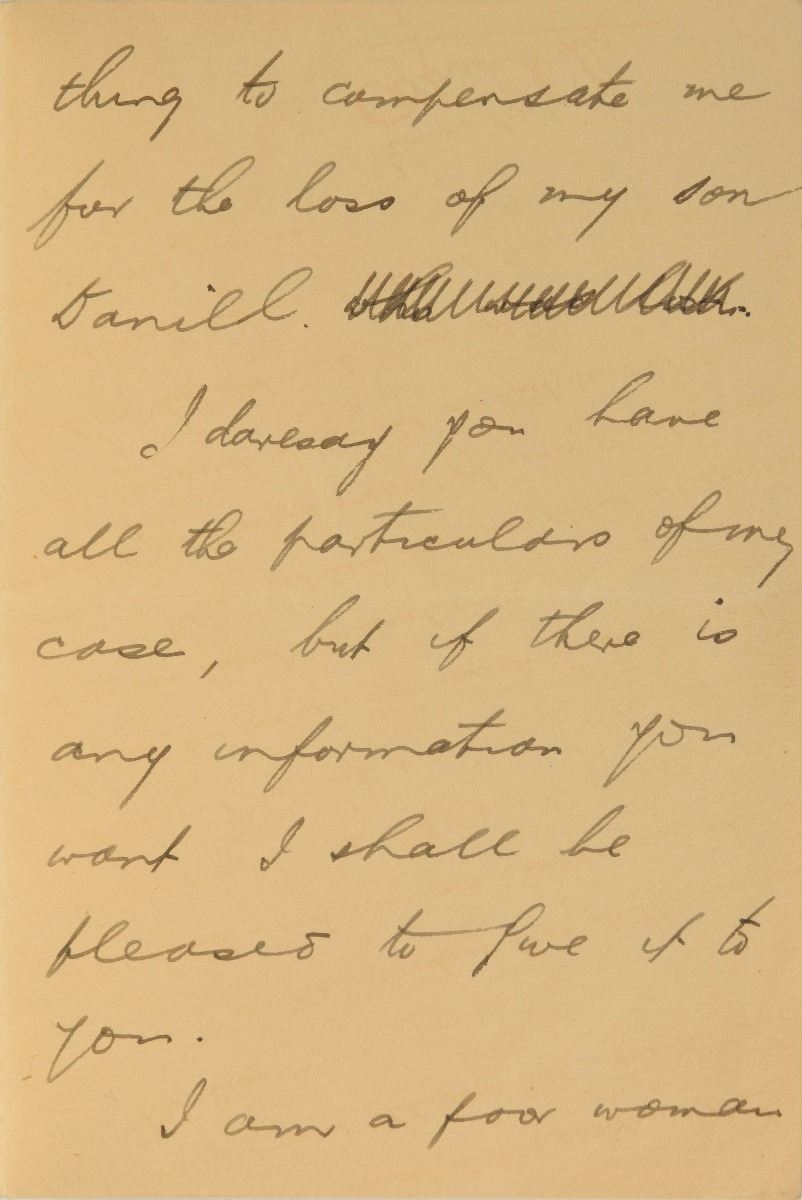 thing to compensate me
for the loss of my son
Daniell.
I daresay you have
all the particulars of my
case, but if there is
any information you
want I shall be
pleased to give it to
you.
I am a poor woman